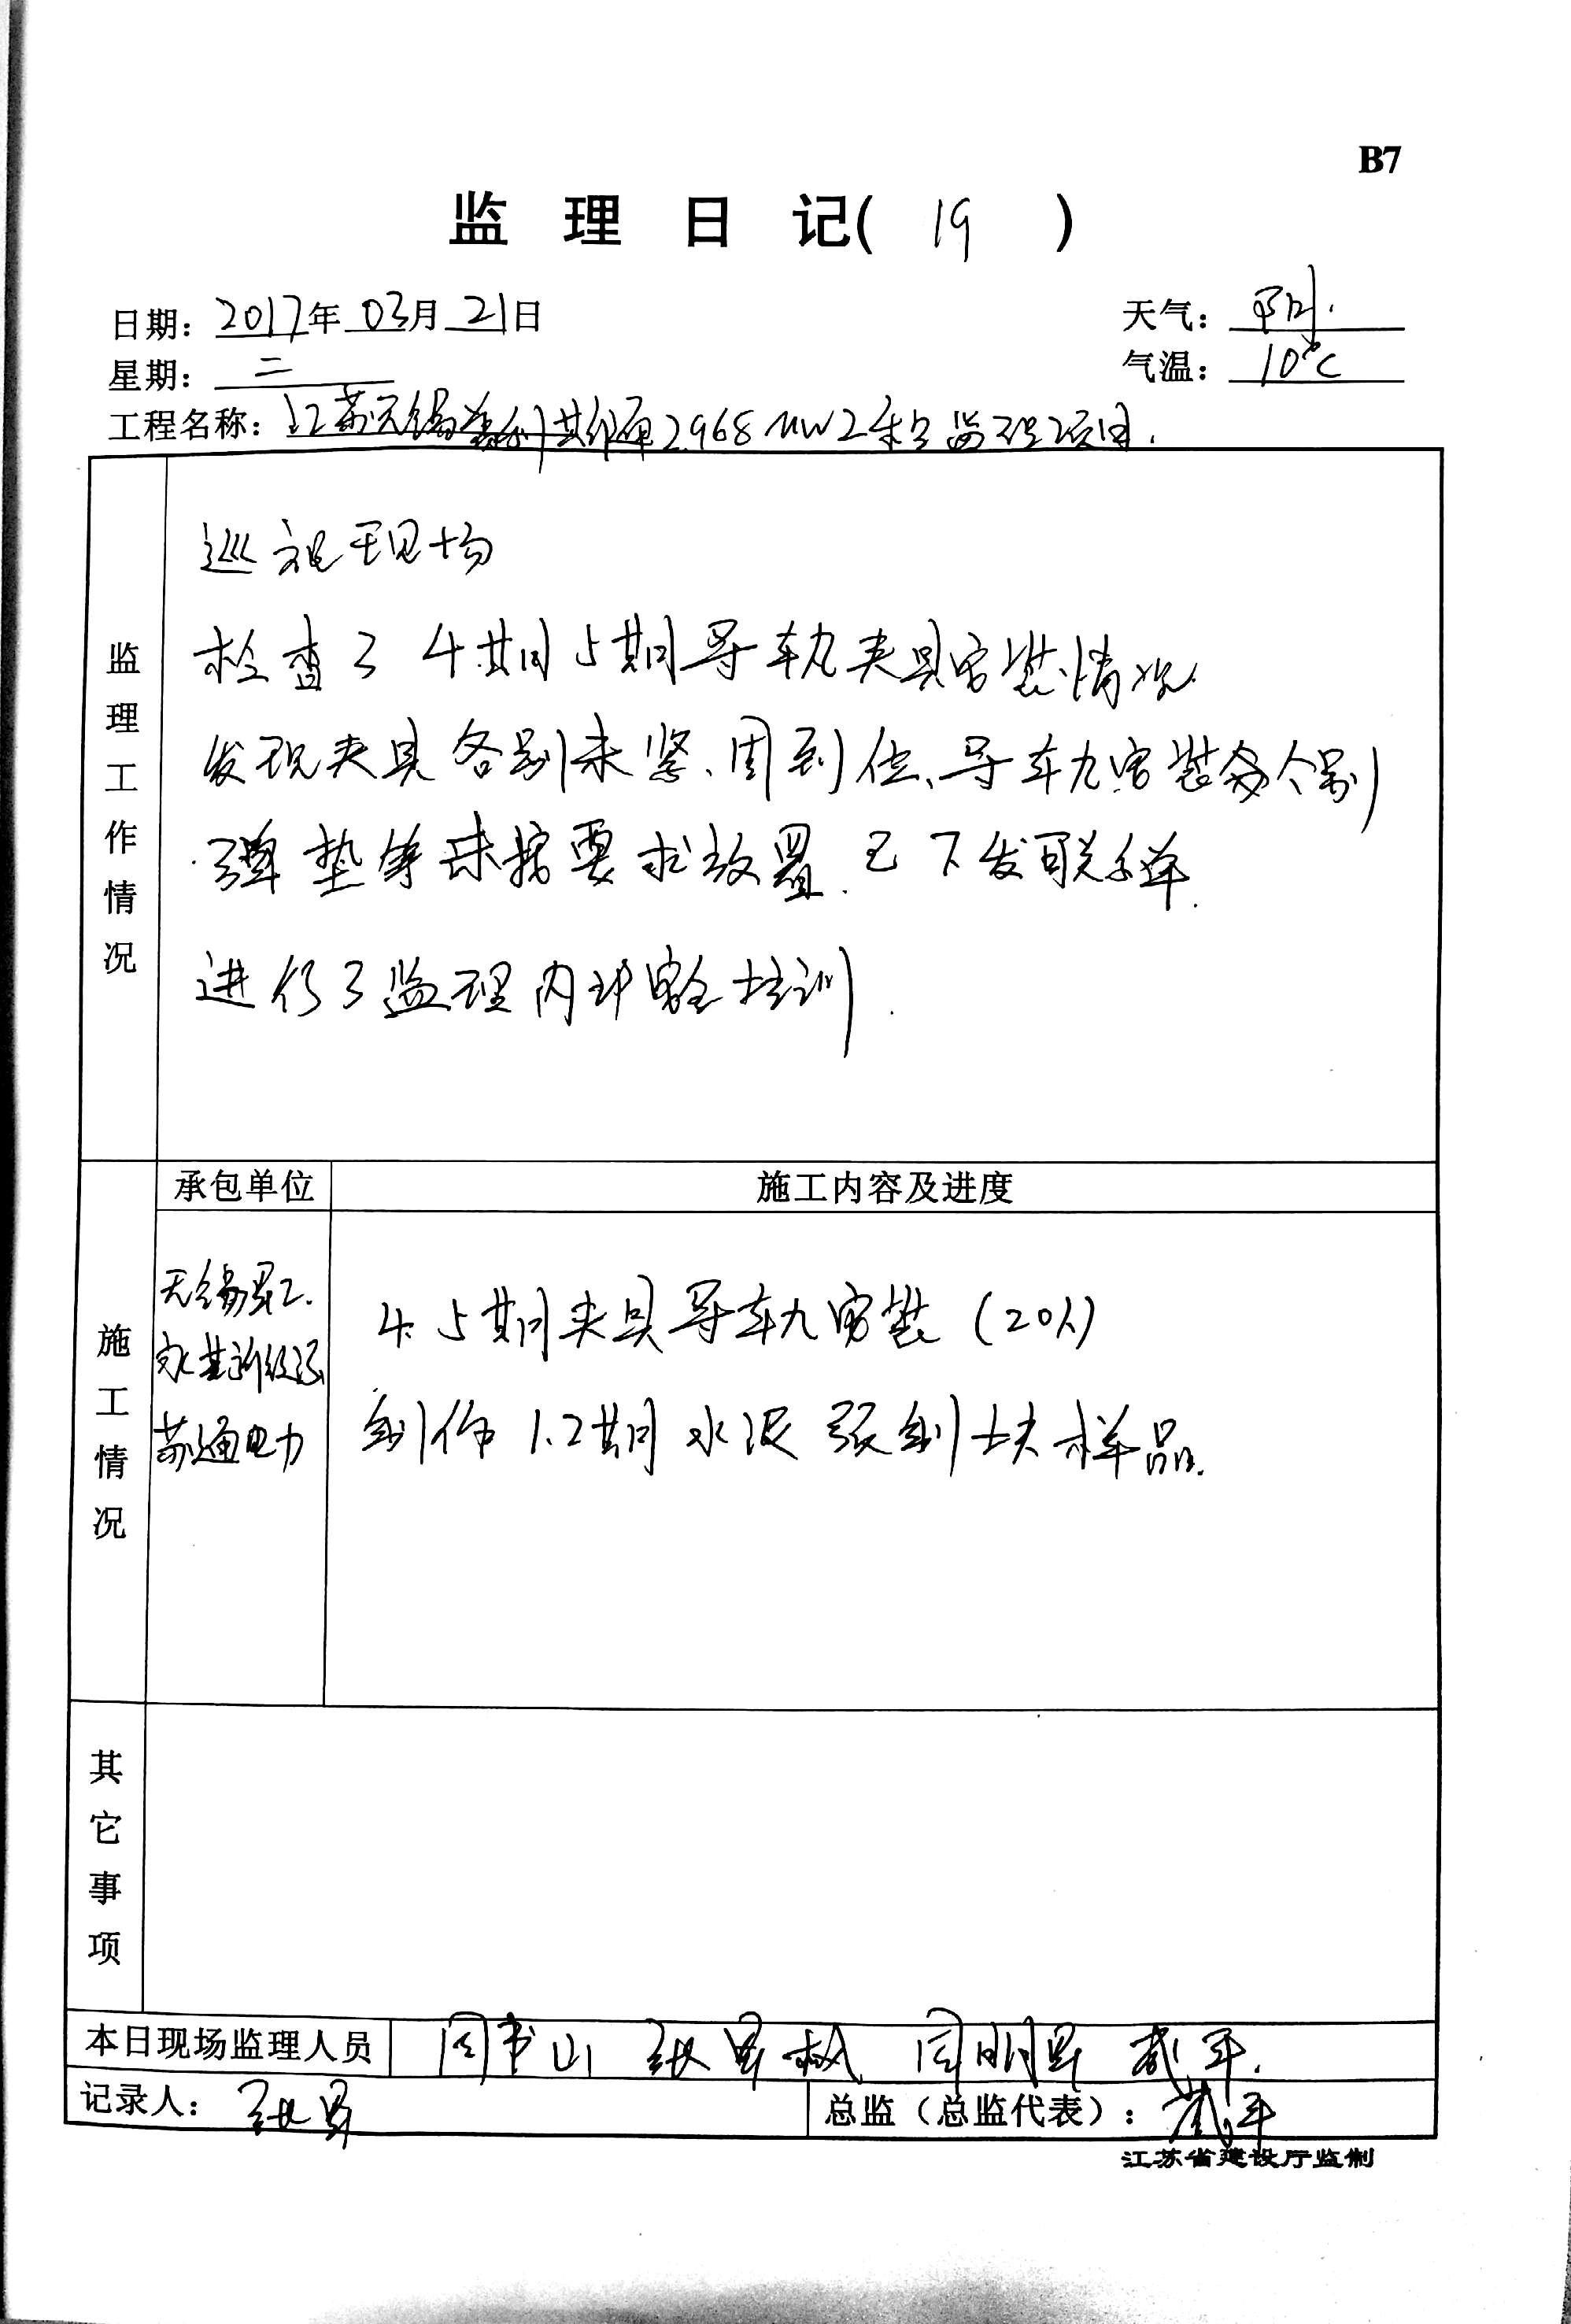 B7
监 理 日 记( 19 )
日期：2017年03月21日
天气：阴.
星期：二
气温：10℃
工程名称：江苏无锡 2.968MW 监理项目.
监理工作情况
巡视现场
检查了4期5期导轨夹具安装情况
发现夹具各别未紧、固到位、导轨安装 个别
弹垫等未按要求放置.已下发联系单.
进行了监理内部安全培训.
承包单位
施工内容及进度
施工情况
无锡
苏通电力
4.5期夹具导轨安装(20人)
制作1.2期水泥预制块样品.
其它事项
本日现场监理人员
周书山
记录人：
总监（总监代表）：
江苏省建设厅监制